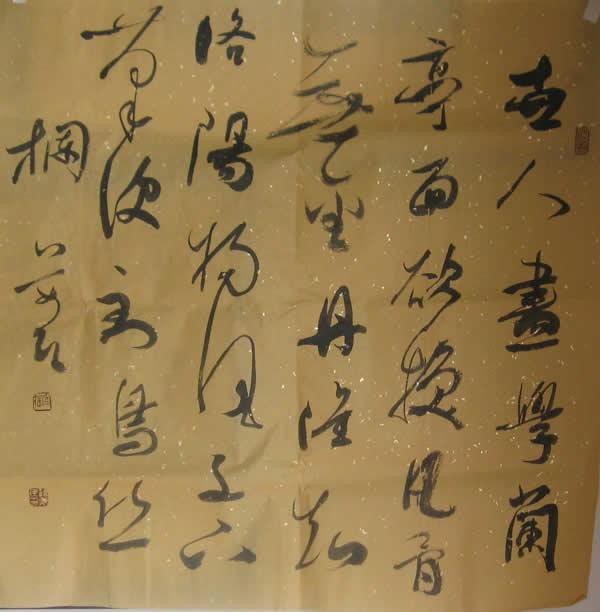 世人盡學蘭
亭面欲換凡骨
無金丹誰知
洛陽楊風子下
筆便到烏絲
欄